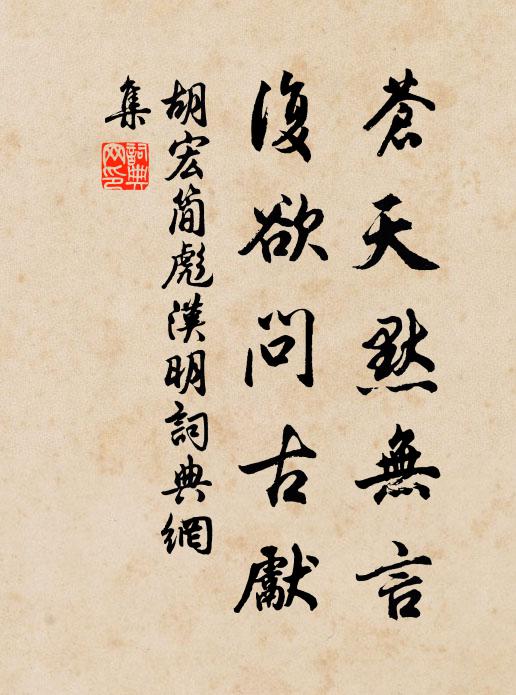 蒼天默無言
復欲問古獻
胡宏簡彪漢明詞典網
集
詞典
网印